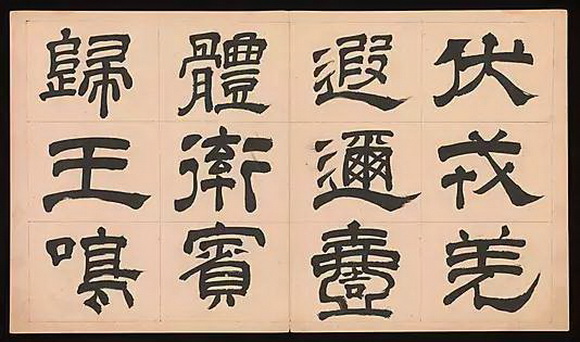 伏戎羌
遐邇壹
體率賓
歸王鳴